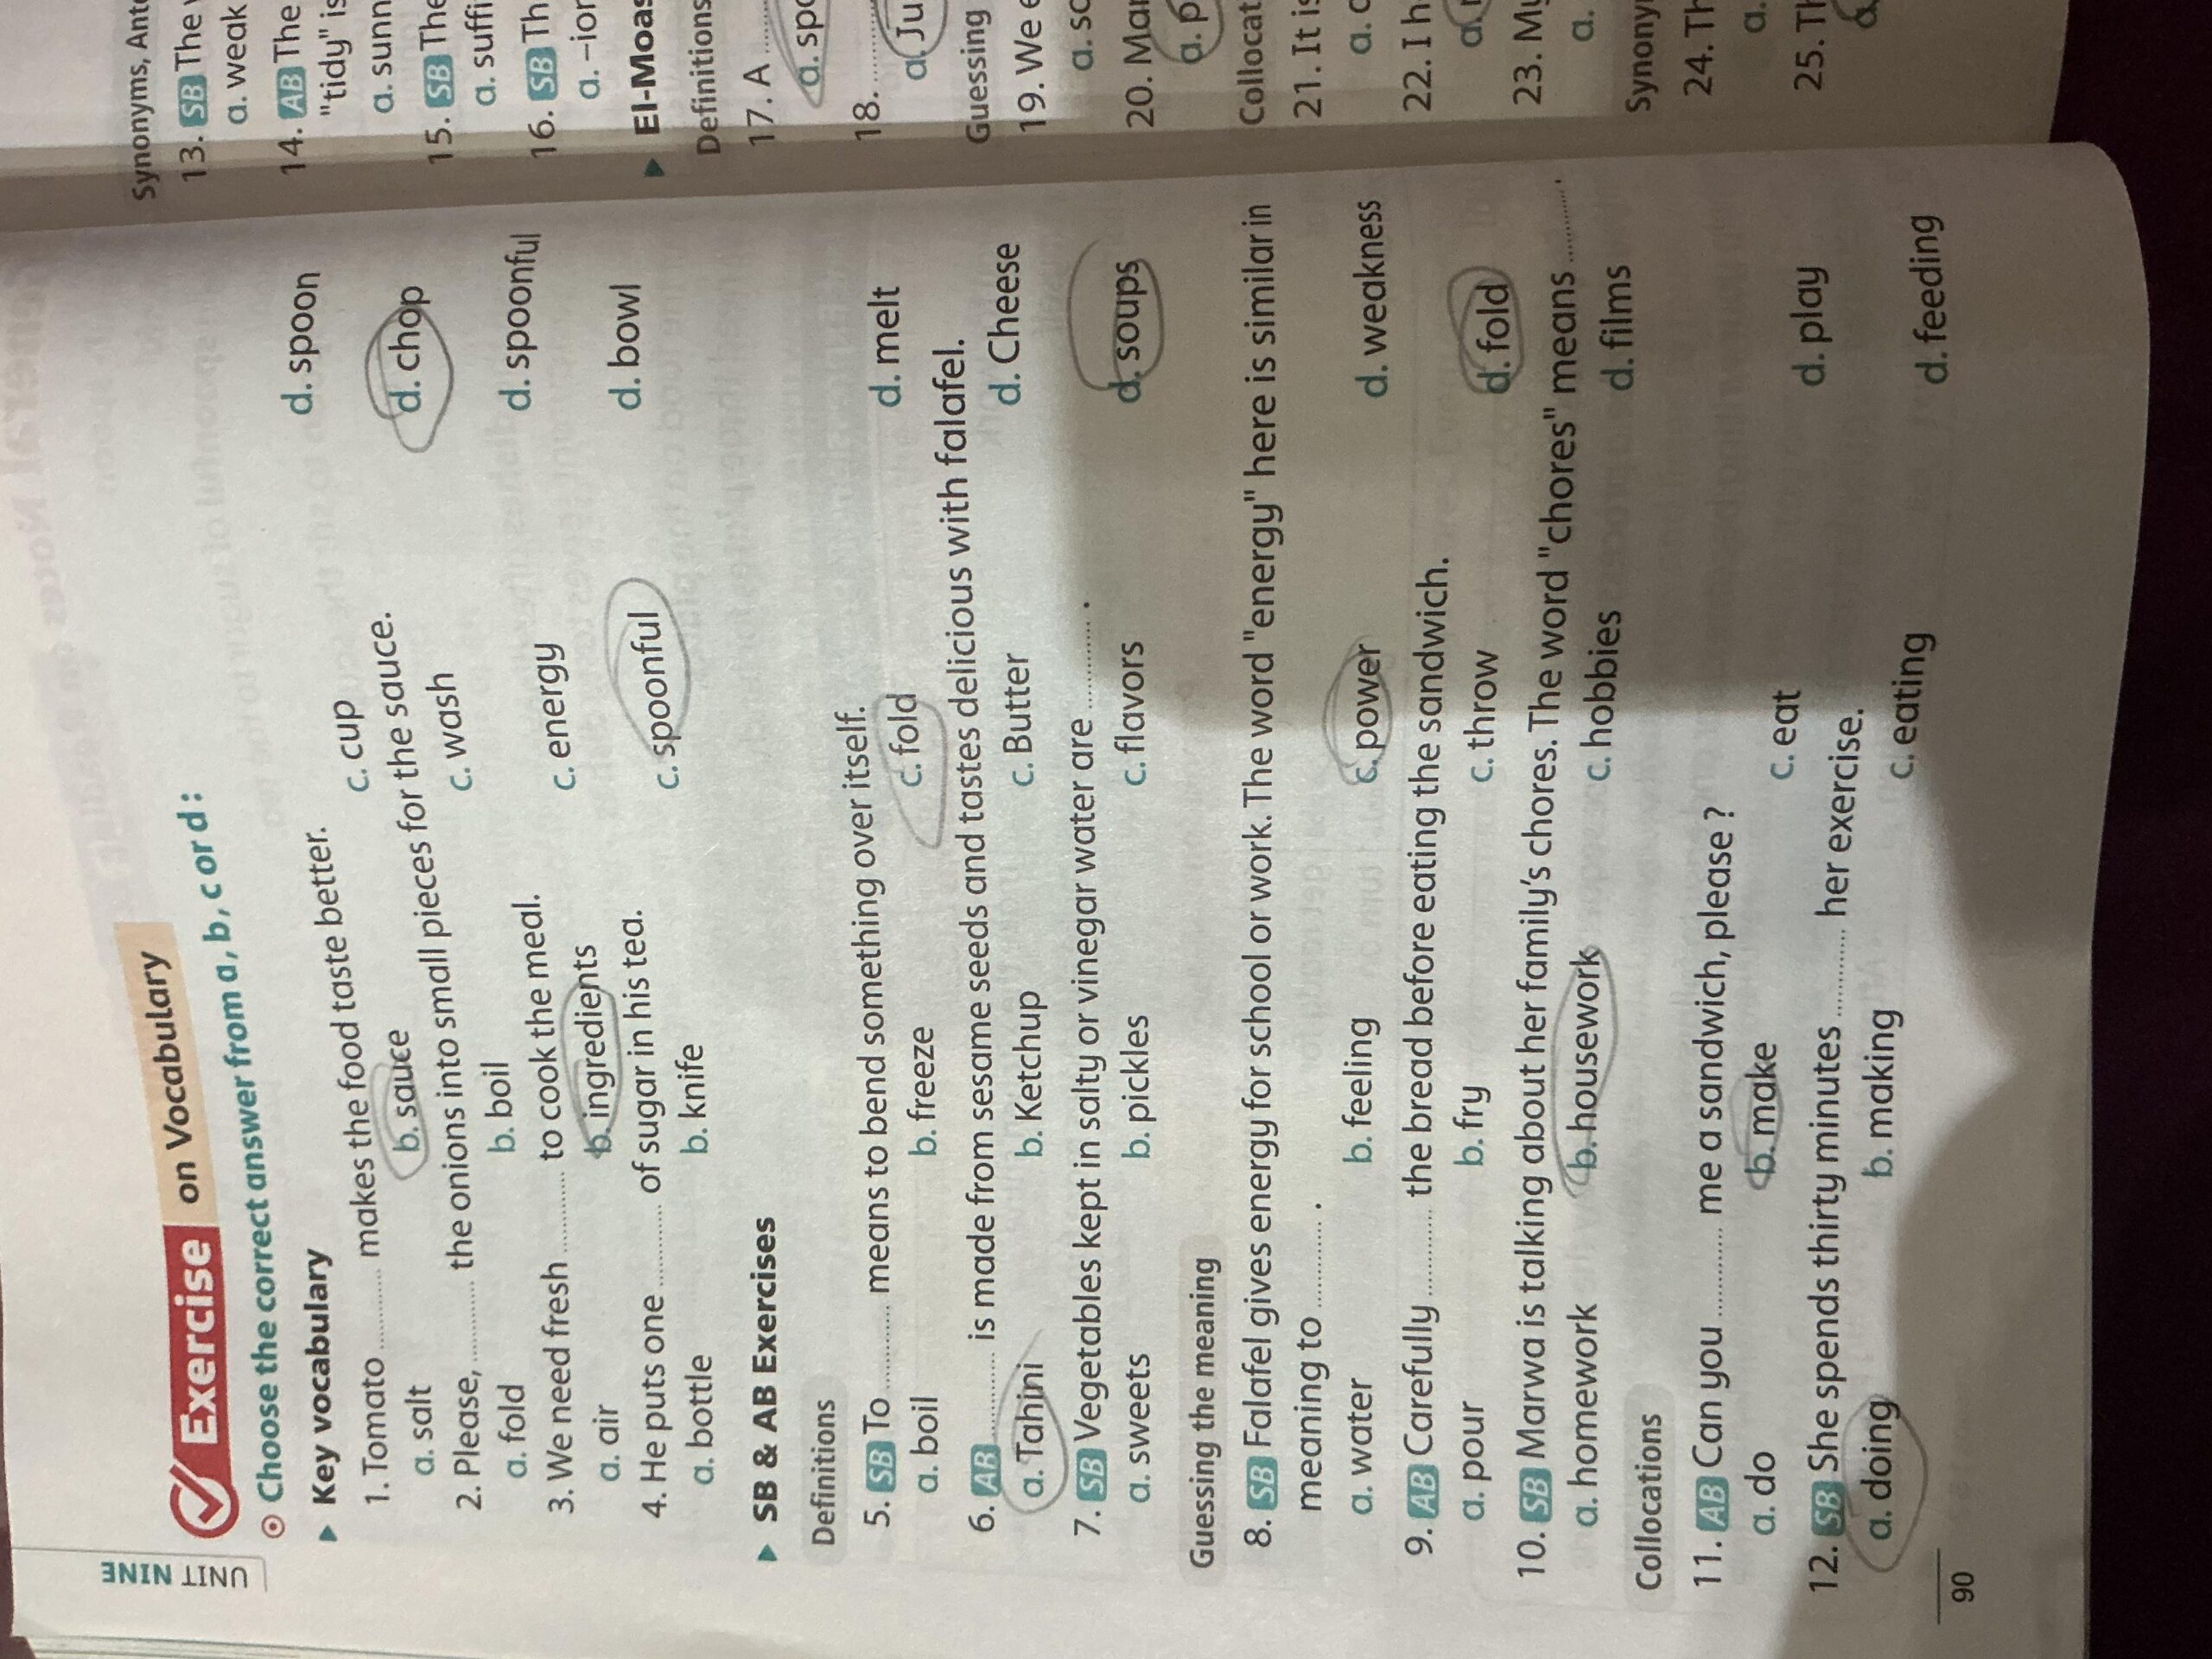 UNIT NINE
Exercise on Vocabulary
Choose the correct answer from a, b, c or d :
Key vocabulary
1. Tomato ............ makes the food taste better.
a. salt b. sauce c. cup d. spoon
2. Please, ............ the onions into small pieces for the sauce.
a. fold b. boil c. wash d. chop
3. We need fresh ............ to cook the meal.
a. air b. ingredients c. energy d. spoonful
4. He puts one ............ of sugar in his tea.
a. bottle b. knife c. spoonful d. bowl
SB & AB Exercises
Definitions
5. SB To ............ means to bend something over itself.
a. boil b. freeze c. fold d. melt
6. AB ............ is made from sesame seeds and tastes delicious with falafel.
a. Tahini b. Ketchup c. Butter d. Cheese
7. SB Vegetables kept in salty or vinegar water are ............ .
a. sweets b. pickles c. flavors d. soups
Guessing the meaning
8. SB Falafel gives energy for school or work. The word "energy" here is similar in
meaning to ............ .
a. water b. feeling c. power d. weakness
9. AB Carefully ............ the bread before eating the sandwich.
a. pour b. fry c. throw d. fold
10. SB Marwa is talking about her family's chores. The word "chores" means ............ .
a. homework b. housework c. hobbies d. films
Collocations
11. AB Can you ............ me a sandwich, please ?
a. do b. make c. eat d. play
12. SB She spends thirty minutes ............ her exercise.
a. doing b. making c. eating d. feeding
90
Synonyms,
13. SB The
a. weak
14. AB The
"tidy" is
a.
15. SB The
a.
16. SB
a. –ion
El-Moas
Definitions
17. A ......
a.
18. ............
a.
Guessing
19. We
a.
20.
a.
21. It is
a.
22. I
a.
23. My
a.
24.
a.
25.
a.